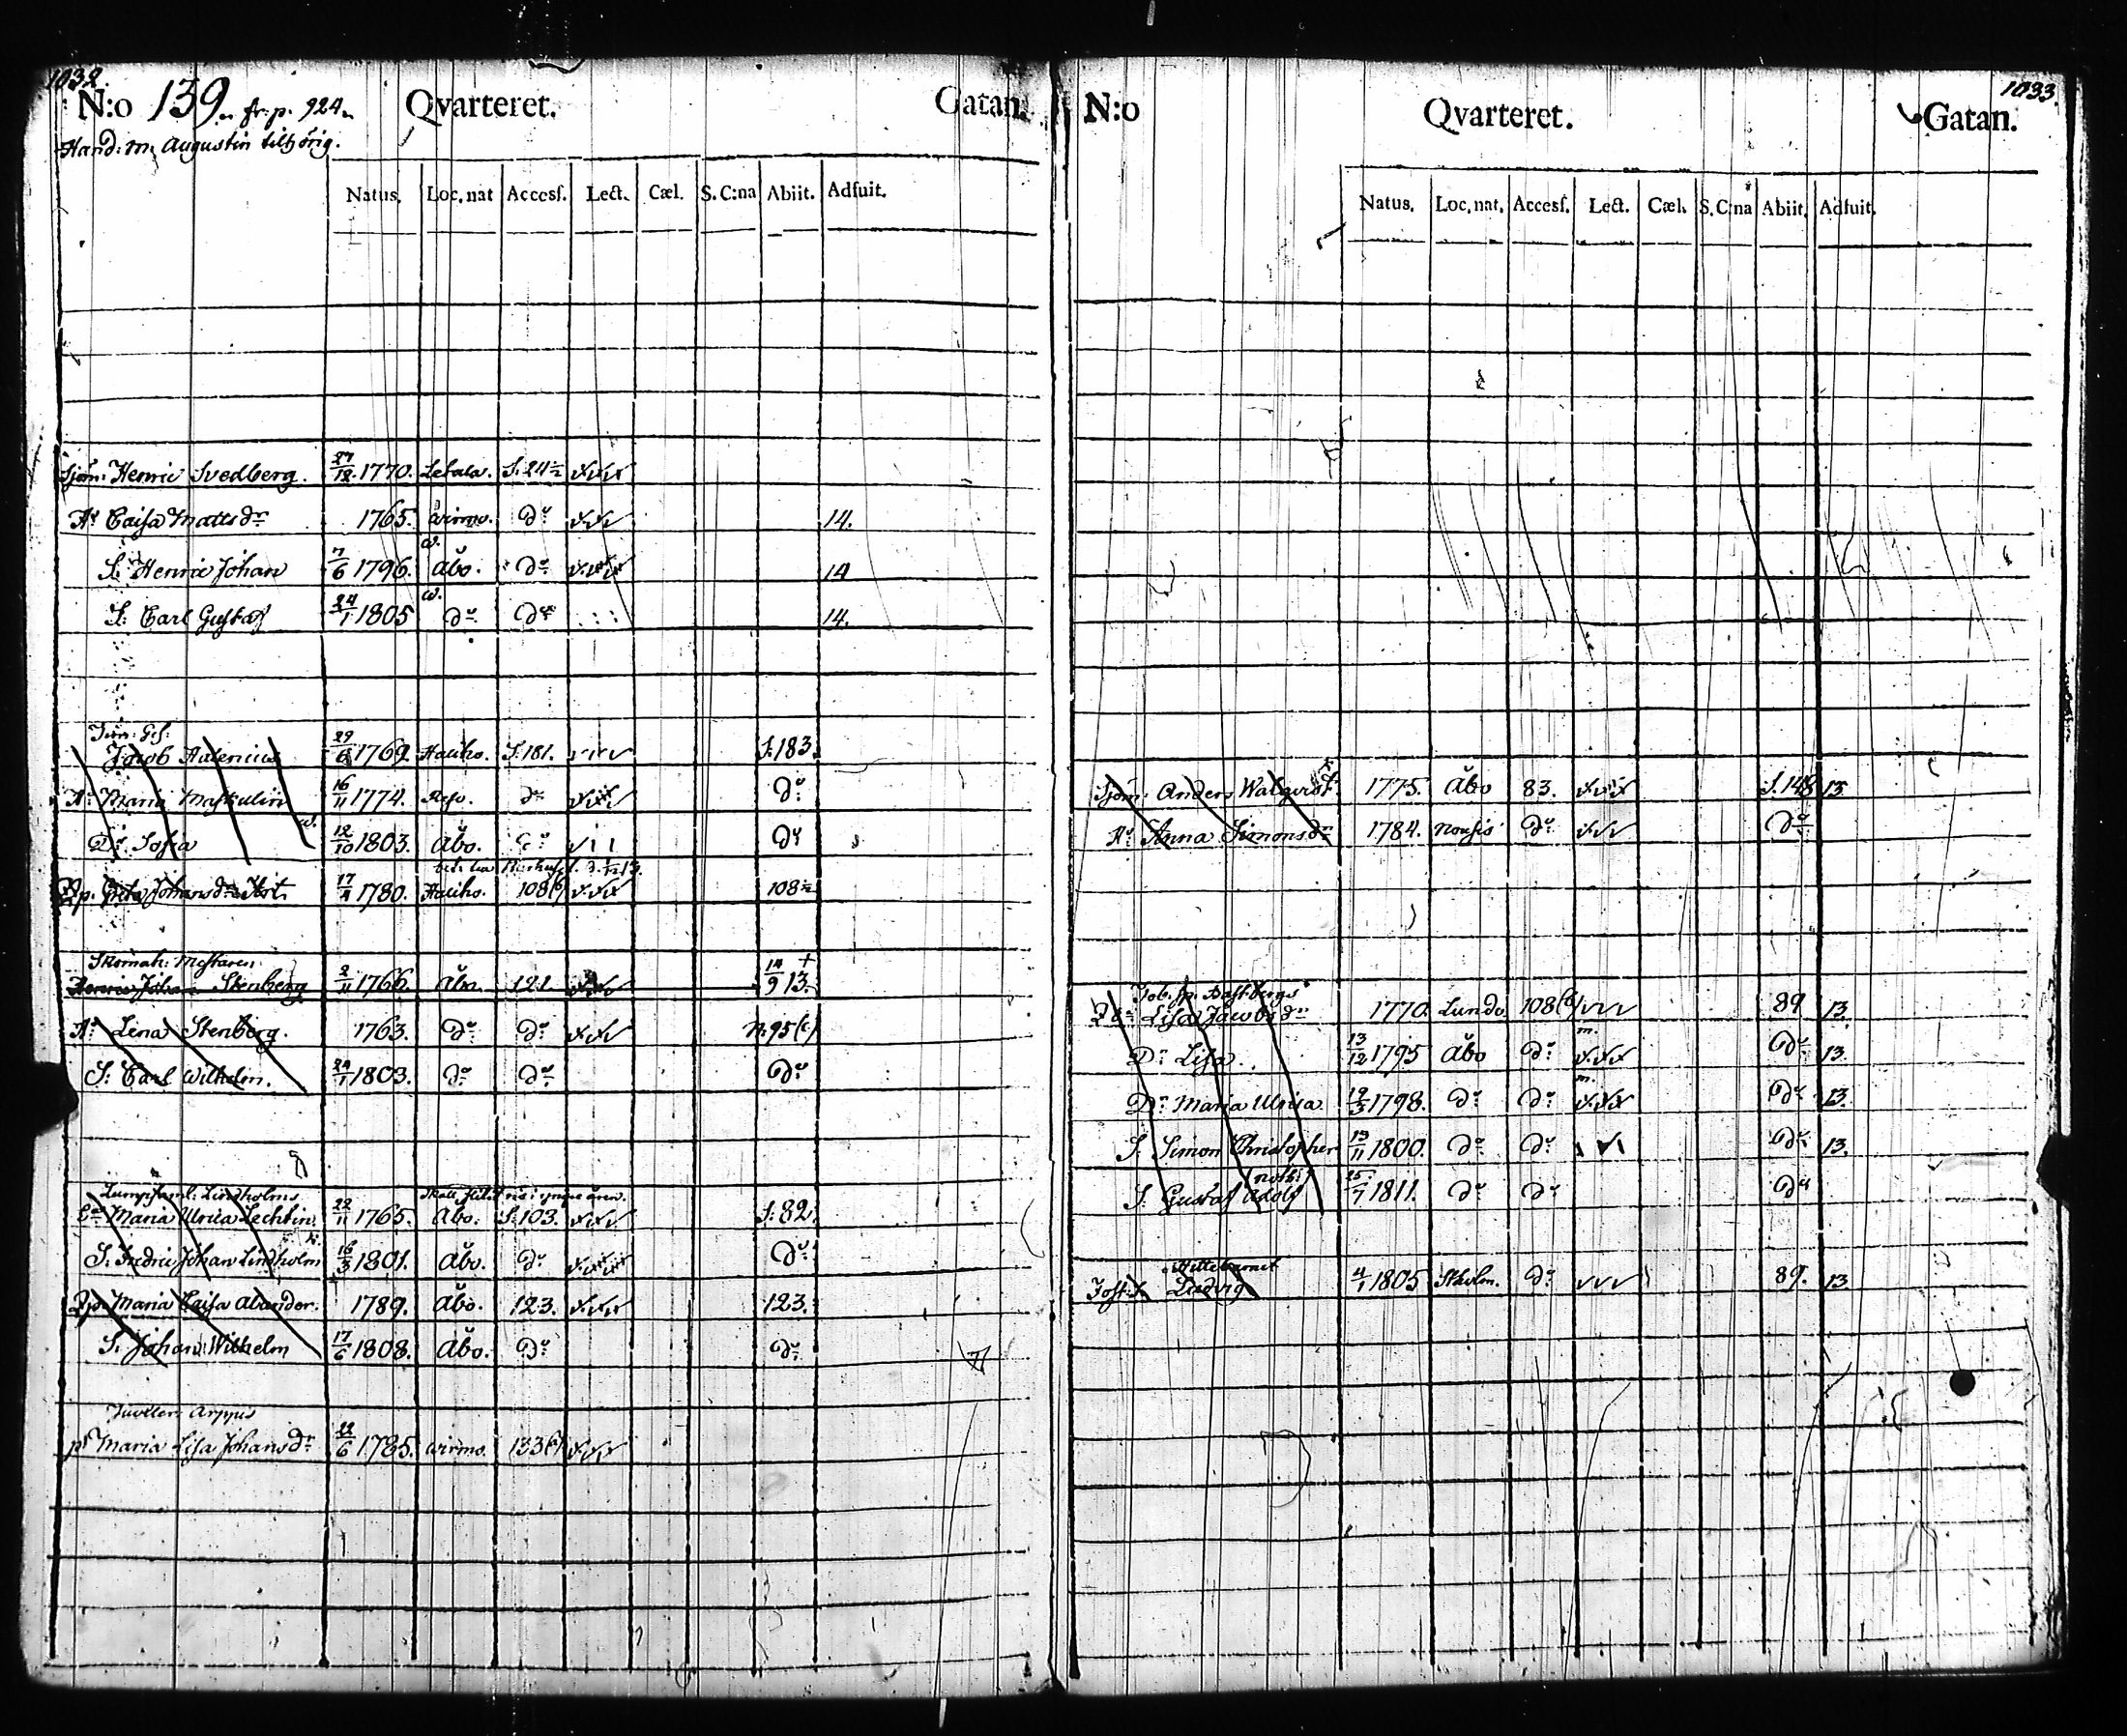 1032.
N:o 139. fr. p. 924. Qvarteret. Gatan.
Hand: m. Augustin tilhörig.
Natus. Loc. nat Accesf. Lect. Cæl. S. C:na Abiit. Adfuit.
Sjöm: Henric Svedberg. 27/12 1770. Letala. S. 24½
Hu Caisa Mattsdr 1765. Wirmo. do 14.
S: Henric Johan 7/6 1796. Åbo. do 14
S: Carl Gustaf 24/1 1805 do do 14.
Tim: Ges:
Jacob 29/6 1769 Hauho. S. 181. S. 183.
Hu Maria Maskulin 16/11 1774. Reso. do do
Dr Sofia 12/10 1803. Åbo. do do
Pp. Greta Johansdr 17/4 1780. Hauho. 108(b) 108½
Skomak: Mästaren
Henric Johan Stenberg 2/11 1766. Åbo. 121 14/9 13. +
Hu Lena Stenberg. 1763. do do N. 95(c)
S: Carl Wilhelm. 24/1 1803. do do do
Lindholms
Maria Ulrica Lechtin. 22/11 1765. Åbo. S. 103. S. 82.
S: Fredric Johan Lindholm 16/3 1801. Åbo. do do
Maria Caisa Alander. 1789. Åbo. 123. 123.
S. Johan Wilhelm 17/6 1808. Åbo. do do
Arppus
pg Maria Lisa Johansdr 22/6 1785. Wirmo. 133(b)
1033.
N:o Qvarteret. Gatan.
Natus. Loc. nat. Accesf. Lect. Cæl. S. C:na Abiit. Adfuit.
Sjöm: Anders Walqvist 1775. Åbo 83. S. 148 13
Hu Anna Simonsdr 1784. Nousis do do
Lisa Jacobsdr 1770. Lundo 108(b) 89 13.
Dr Lisa. 13/12 1795 Åbo do do 13.
Dr Maria Ulrica 12/3 1798. do do do 13.
S. Simon Christopher 13/11 1800. do do do 13.
S. Gustaf Adolf 25/7 1811. do do do
Hittebarnet
Ludvig 4/1 1805 Stkolm. do 89. 13